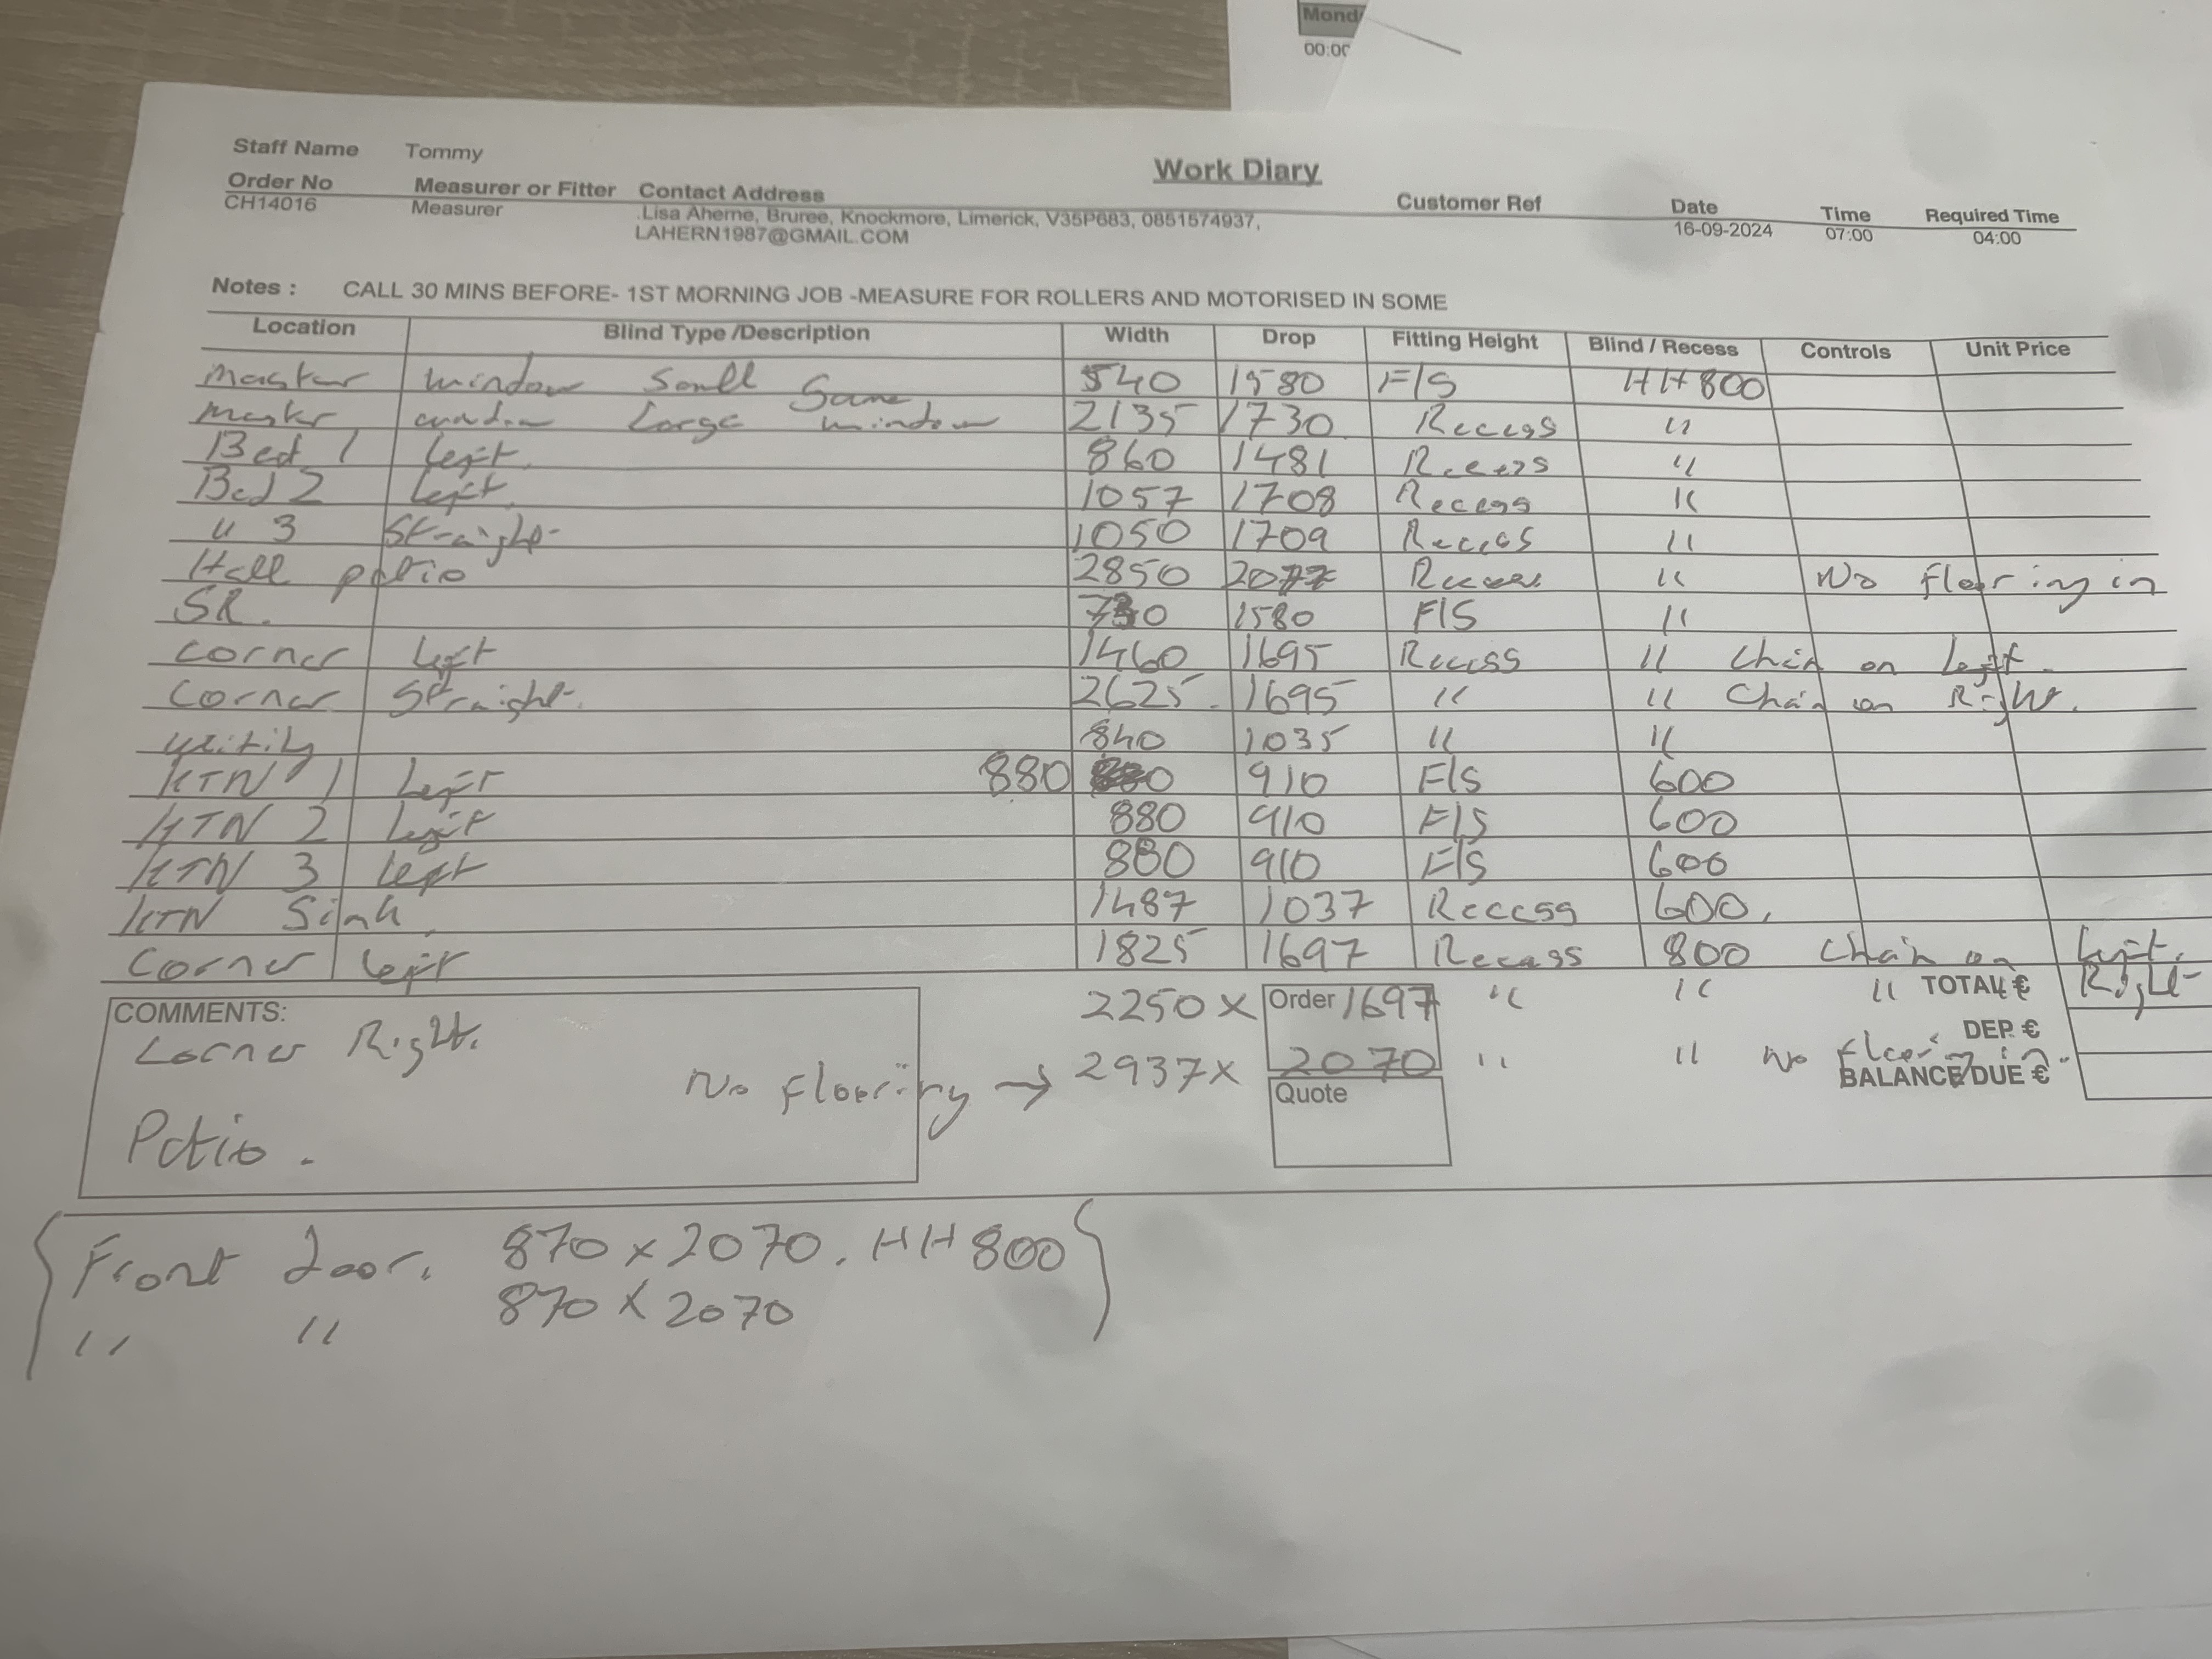 Mond
00:00
Staff Name Tommy
Work Diary
Order No Measurer or Fitter Contact Address Customer Ref Date Time Required Time
CH14016 Measurer .Lisa Aherne, Bruree, Knockmore, Limerick, V35P683, 0851574937, 16-09-2024 07:00 04:00
LAHERN1987@GMAIL.COM
Notes : CALL 30 MINS BEFORE- 1ST MORNING JOB -MEASURE FOR ROLLERS AND MOTORISED IN SOME
Location Blind Type /Description Width Drop Fitting Height Blind / Recess Controls Unit Price
Master window Small 540 1580 F/S HH800
Master window Large Same window 2135 1730 Recess "
Bed 1 left. 860 1481 Recess "
Bed 2 left. 1057 1708 Recess "
" 3 Straight 1050 1709 Recess "
Hall patio 2850 2077 Recess " No flooring in
SR. 730 1580 F/S "
Corner left 1460 1695 Recess " Chain on left.
Corner Straight. 2625. 1695 " " Chain on Right.
utility 840 1035 " "
KTN 1 left 880 910 F/S 600
KTN 2 left 880 910 F/S 600
KTN 3 left 880 910 F/S 600
KTN Sink. 1487 1037 Recess 600.
Corner left 1825 1697 Recess 800 Chain on left.
COMMENTS:
Corner Right. 2250 x Order 1697 " " " TOTAL € Right
DEP €
No flooring → 2937 x 2070 " " No flooring in.
BALANCE DUE €
Quote
Patio.
Front door. 870 x 2070. HH 800
" " 870 x 2070